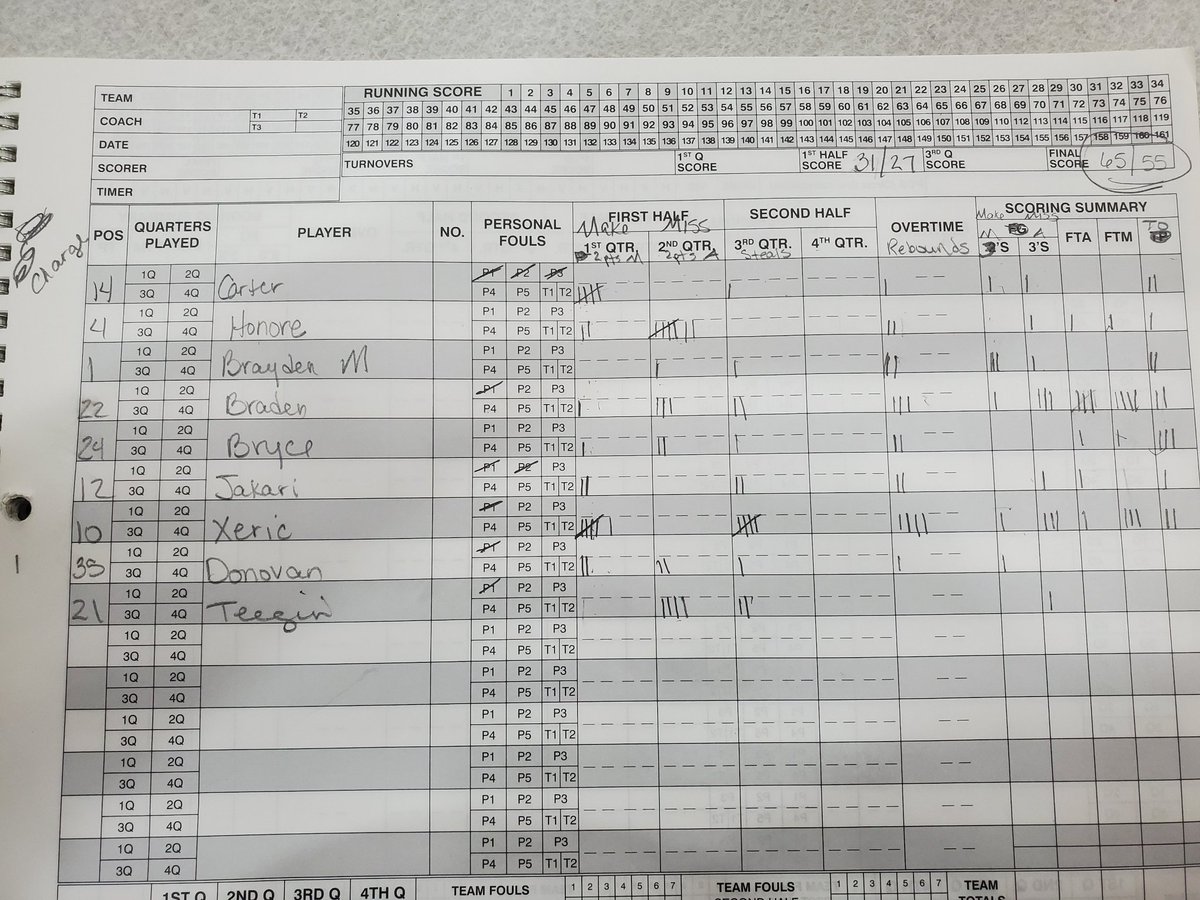 RUNNING SCORE 1 2 3 4 5 6 7 8 9 10 11 12 13 14 15 16 17 18 19 20 21 22 23 24 25 26 27 28 29 30 31 32 33 34
TEAM
35 36 37 38 39 40 41 42 43 44 45 46 47 48 49 50 51 52 53 54 55 56 57 58 59 60 61 62 63 64 65 66 67 68 69 70 71 72 73 74 75 76
COACH T1 T2 T3
77 78 79 80 81 82 83 84 85 86 87 88 89 90 91 92 93 94 95 96 97 98 99 100 101 102 103 104 105 106 107 108 109 110 111 112 113 114 115 116 117 118 119
DATE
120 121 122 123 124 125 126 127 128 129 130 131 132 133 134 135 136 137 138 139 140 141 142 143 144 145 146 147 148 149 150 151 152 153 154 155 156 157 158 159 160 161
SCORER
TURNOVERS 1ST Q SCORE 1ST HALF SCORE 31/27 3RD Q SCORE FINAL SCORE 65/55
TIMER
Charge
POS QUARTERS PLAYED PLAYER NO. PERSONAL FOULS FIRST HALF SECOND HALF OVERTIME SCORING SUMMARY
Make Miss Make Miss
1ST QTR. 2ND QTR. 3RD QTR. 4TH QTR. Rebounds M A 3'S 3'S FTA FTM TO
2 pts M 2 pts A Steals
1Q 2Q P1 P2 P3
14 3Q 4Q Carter P4 P5 T1 T2
1Q 2Q P1 P2 P3
4 3Q 4Q Honore P4 P5 T1 T2
1Q 2Q P1 P2 P3
1 3Q 4Q Brayden M P4 P5 T1 T2
1Q 2Q P1 P2 P3
22 3Q 4Q Braden P4 P5 T1 T2
1Q 2Q P1 P2 P3
24 3Q 4Q Bryce P4 P5 T1 T2
1Q 2Q P1 P2 P3
12 3Q 4Q Jakari P4 P5 T1 T2
1Q 2Q P1 P2 P3
10 3Q 4Q Xeric P4 P5 T1 T2
1Q 2Q P1 P2 P3
35 3Q 4Q Donovan P4 P5 T1 T2
1Q 2Q P1 P2 P3
21 3Q 4Q Teegin P4 P5 T1 T2
1Q 2Q P1 P2 P3
3Q 4Q P4 P5 T1 T2
1Q 2Q P1 P2 P3
3Q 4Q P4 P5 T1 T2
1Q 2Q P1 P2 P3
3Q 4Q P4 P5 T1 T2
1Q 2Q P1 P2 P3
3Q 4Q P4 P5 T1 T2
1Q 2Q P1 P2 P3
3Q 4Q P4 P5 T1 T2
1Q 2Q P1 P2 P3
3Q 4Q P4 P5 T1 T2
1ST Q 2ND Q 3RD Q 4TH Q TEAM FOULS 1 2 3 4 5 6 7 TEAM FOULS 1 2 3 4 5 6 7 TEAM
SECOND HALF TOTALS